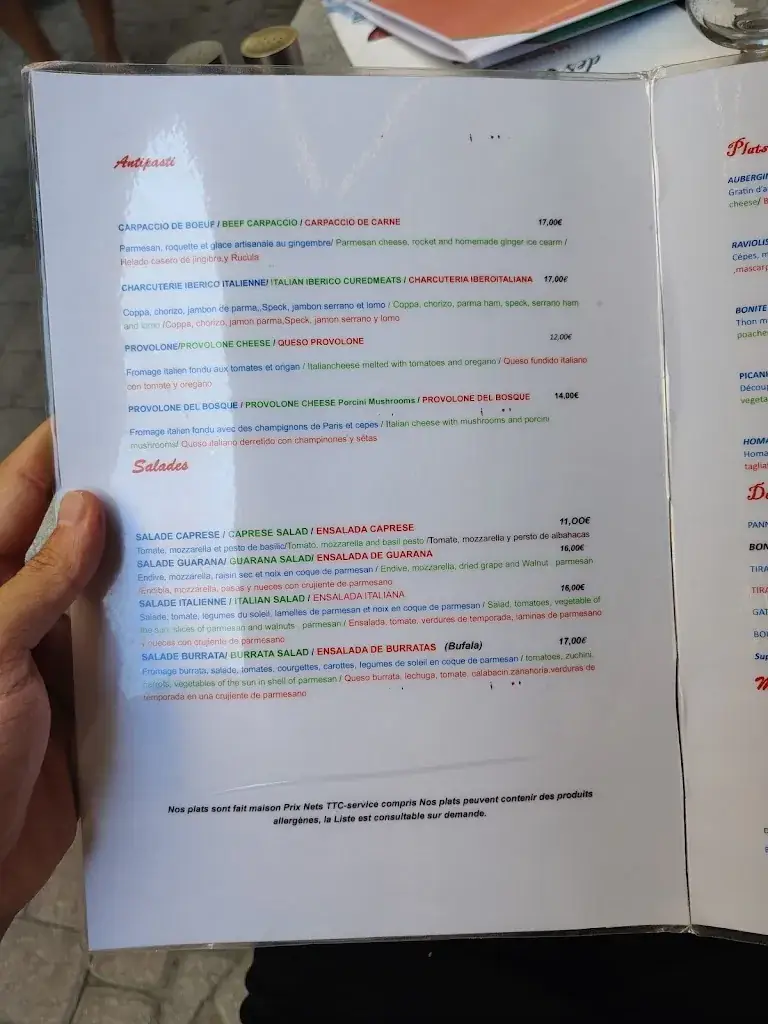 Antipasti
CARPACCIO DE BOEUF / BEEF CARPACCIO / CARPACCIO DE CARNE 17,00€
Parmesan, roquette et glace artisanale au gingembre/ Parmesan cheese, rocket and homemade ginger ice cearm /
Helado casero de jingibre,y Rucula
CHARCUTERIE IBERICO ITALIENNE/ ITALIAN IBERICO CUREDMEATS / CHARCUTERIA IBEROITALIANA 17,00€
Coppa, chorizo, jambon de parma,,Speck, jambon serrano et lomo / Coppa, chorizo, parma ham, speck, serrano ham
and lomo /Coppa, chorizo, jamon parma,Speck, jamon serrano y lomo
PROVOLONE/PROVOLONE CHEESE / QUESO PROVOLONE 12,00€
Fromage italien fondu aux tomates et origan / Italiancheese melted with tomatoes and oregano / Queso fundido italiano
con tomate y oregano
PROVOLONE DEL BOSQUE / PROVOLONE CHEESE Porcini Mushrooms / PROVOLONE DEL BOSQUE 14,00€
Fromage italien fondu avec des champignons de Paris et cepes / Italian cheese with mushrooms and porcini
mushrooms/ Queso italiano derretido con champinones y sétas
Salades
SALADE CAPRESE / CAPRESE SALAD / ENSALADA CAPRESE 11,00€
Tomate, mozzarella et pesto de basilic/Tomato, mozzarella and basil pesto /Tomate, mozzarella y persto de albahacas
SALADE GUARANA/ GUARANA SALAD/ ENSALADA DE GUARANA 16,00€
Endive, mozzarella, raisin sec et noix en coque de parmesan / Endive, mozzarella, dried grape and Walnut parmesan
/Endibia, mozzarella, pasas y nueces con crujiente de parmesano
SALADE ITALIENNE / ITALIAN SALAD / ENSALADA ITALIANA 16,00€
Salade, tomate, légumes du soleil, lamelles de parmesan et noix en coque de parmesan / Salad, tomatoes, vegetable of
the sun, slices of parmesan and walnuts parmesan / Ensalada, tomate, verdures de temporada, laminas de parmesano
y nueces con crujiente de parmesano
SALADE BURRATA/ BURRATA SALAD / ENSALADA DE BURRATAS (Bufala) 17,00€
Fromage burrata, salade, tomates, courgettes, carottes, legumes de soleil en coque de parmesan / tomatoes, zuchini,
carrots, vegetables of the sun in shell of parmesan / Queso burrata, lechuga, tomate, calabacin,zanahoria,verduras de
temporada en una crujiente de parmesano
Nos plats sont fait maison Prix Nets TTC-service compris Nos plats peuvent contenir des produits
allergènes, la Liste est consultable sur demande.
Plats
AUBERGIN
Gratin d'a
cheese/ B
RAVIOLIS
Cèpes, m
,mascarp
BONITE
Thon m
poachee
PICAN
Découp
vegeta
HOMA
Homa
tagliat
PANN
BON
TIRA
TIRA
GAT
BOU
Sup